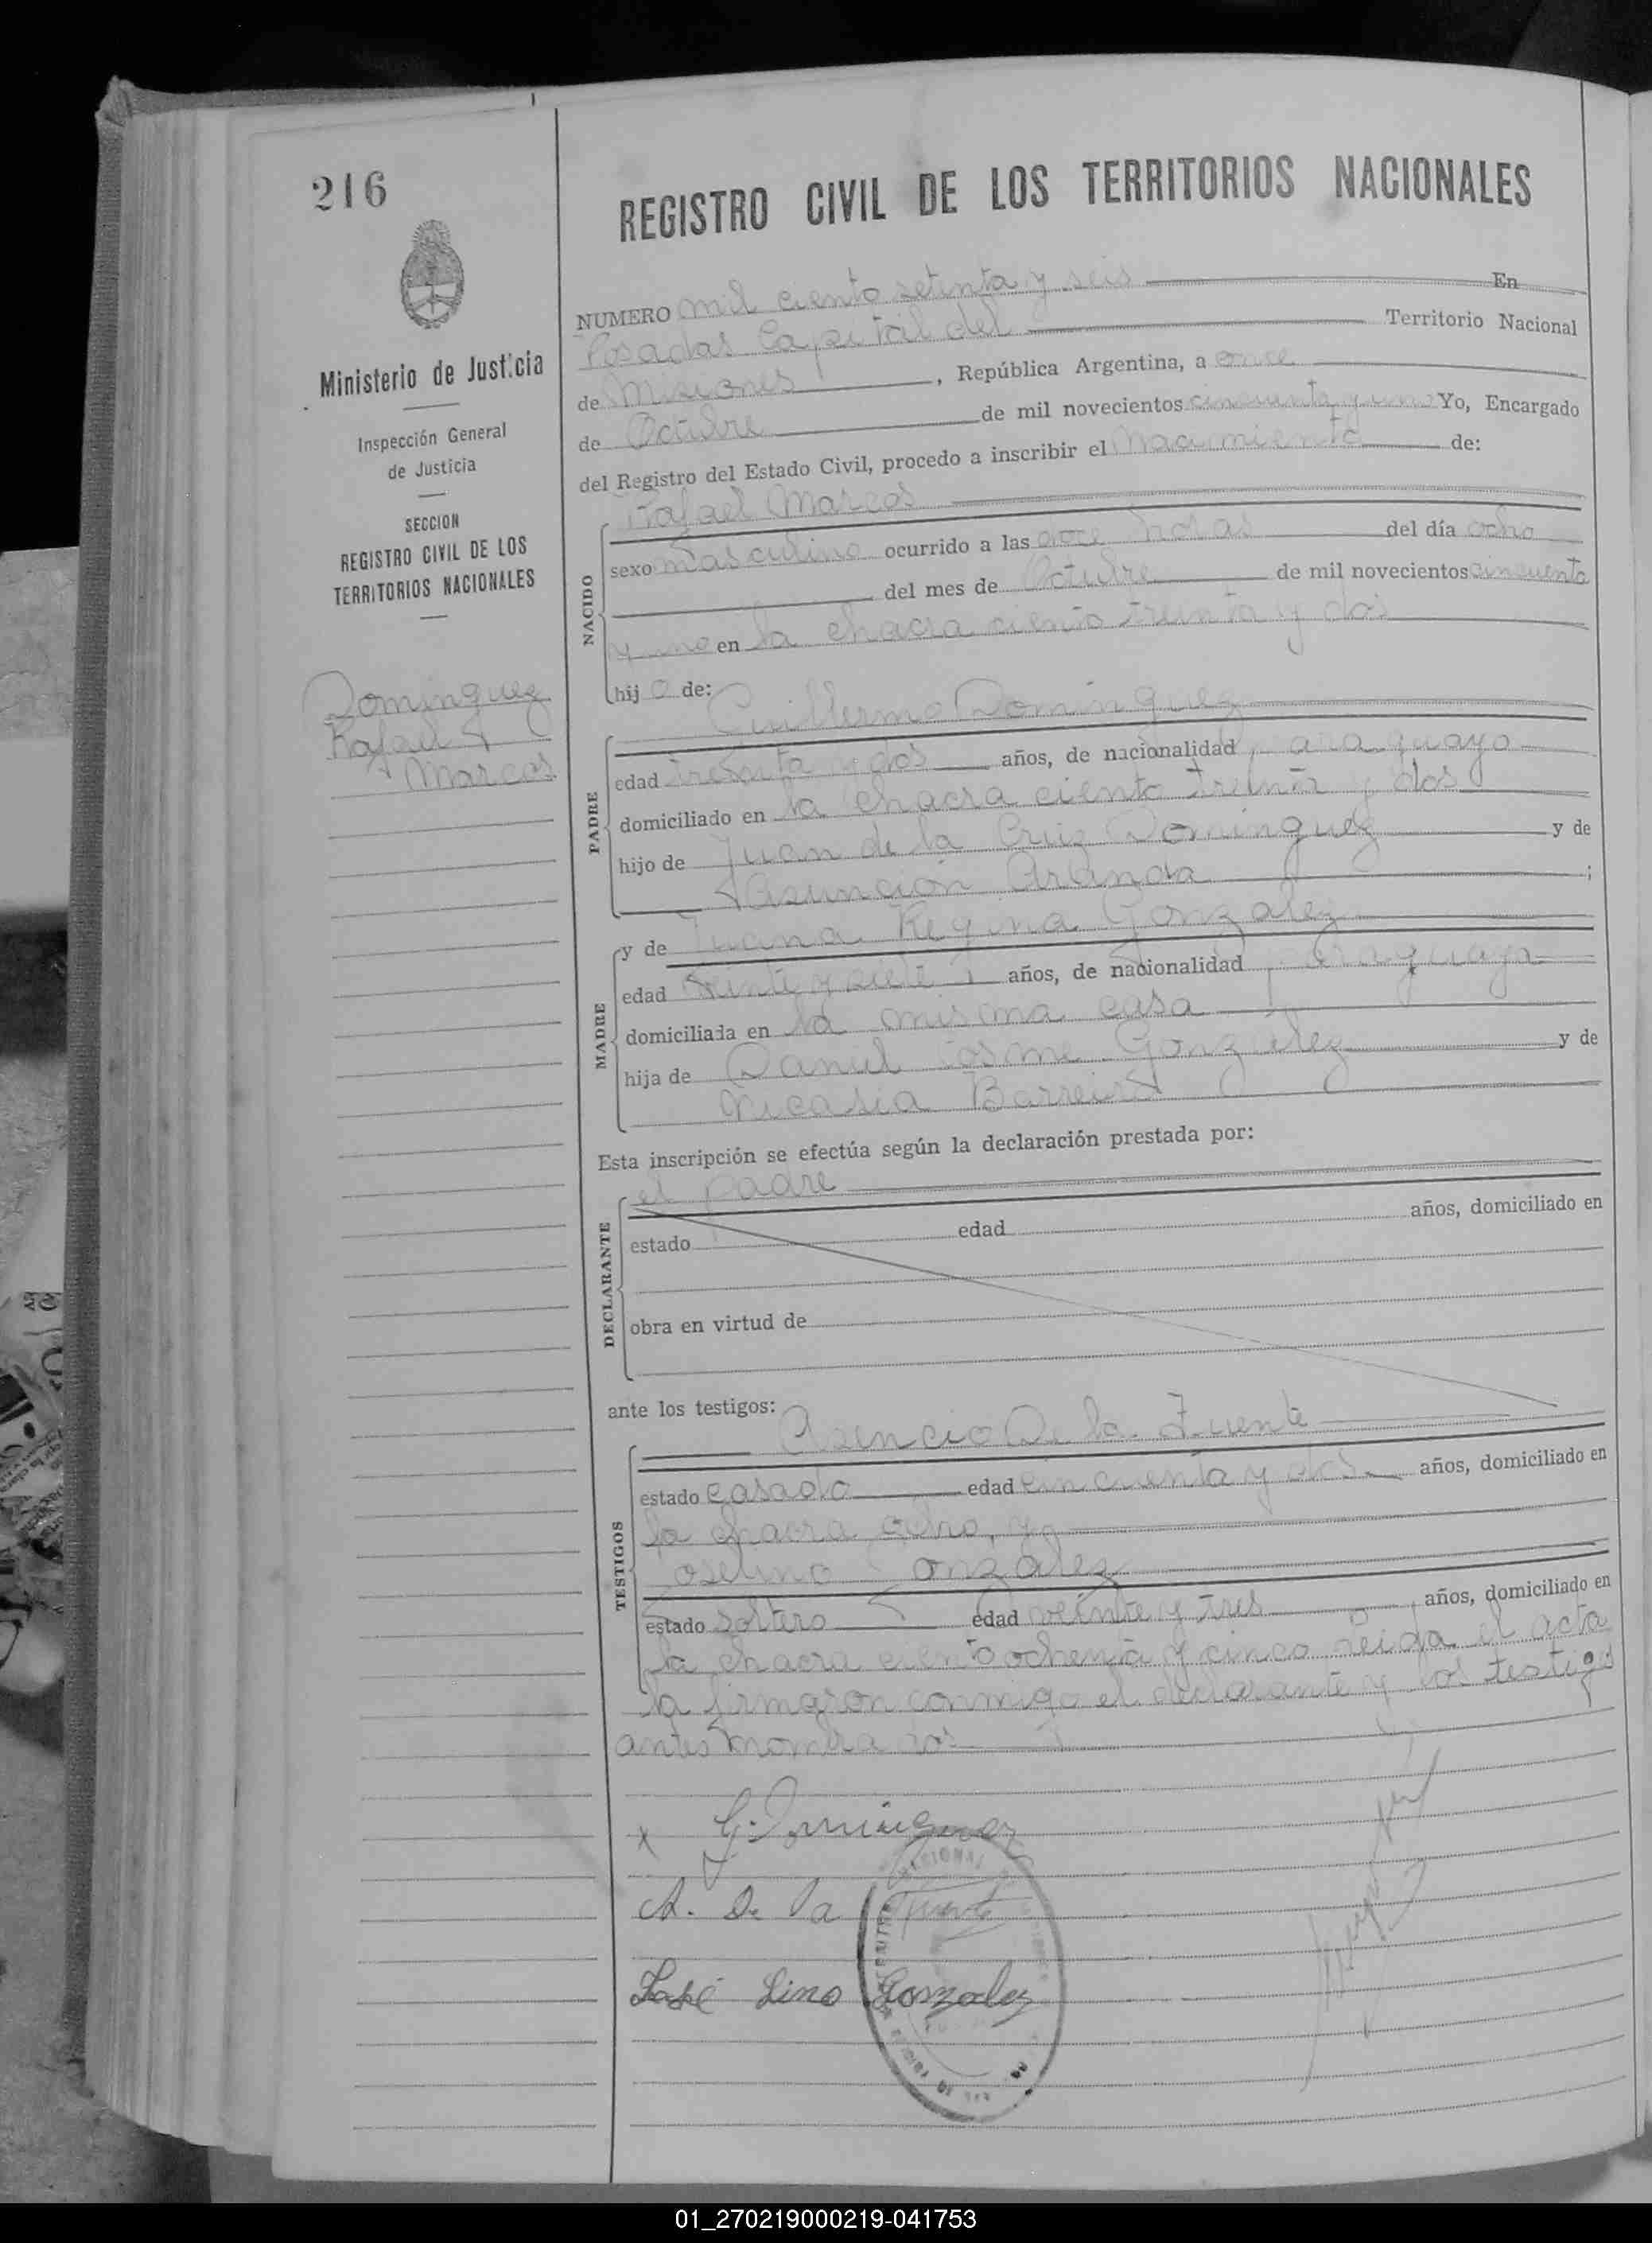 216
REGISTRO CIVIL DE LOS TERRITORIOS NACIONALES
Ministerio de Justicia
Inspección General
de Justicia
SECCION
REGISTRO CIVIL DE LOS
TERRITORIOS NACIONALES
Dominguez
Rafael
Marcos
NUMERO mil ciento setenta y seis En
Posadas Capital del Territorio Nacional
de Misiones, República Argentina, a once
de Octubre de mil novecientos cincuenta y uno Yo, Encargado
del Registro del Estado Civil, procedo a inscribir el Nacimiento de:
NACIDO
Rafael Marcos
sexo Masculino ocurrido a las doce horas del día ocho
del mes de Octubre de mil novecientos cincuenta
y uno en la chacra ciento treinta y dos
hijo de:
PADRE
Guillermo Dominguez
edad treinta y dos años, de nacionalidad paraguayo
domiciliado en la chacra ciento treinta y dos
hijo de Juan de la Cruz Dominguez y de
Asunción Aranda;
MADRE
y de Juana Regina Gonzalez
edad veinte y siete años, de nacionalidad paraguaya
domiciliada en la misma casa
hija de Daniel Cosme Gonzalez y de
Nicasia Barreiro
Esta inscripción se efectúa según la declaración prestada por:
DECLARANTE
el padre
estado edad años, domiciliado en
obra en virtud de
ante los testigos:
TESTIGOS
Asencio De la Fuente
estado casado edad cincuenta y años, domiciliado en
la chacra ocho, y
Joselino Gonzalez
estado soltero edad veinte y tres años, domiciliado en
la chacra ciento ochenta y cinco Leida el acta
la firmaron conmigo el declarante y los testigos
antes nombrados
x G. Dominguez
A. De la Fuente
José Lino Gonzalez
01_270219000219-041753